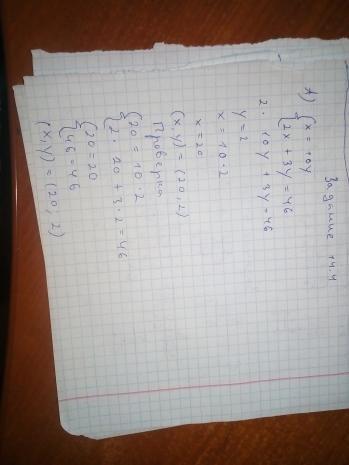 Задание 14.4
1) { x = 10y
{ 2x + 3y = 46
2 · 10y + 3y = 46
y = 2
x = 10 · 2
x = 20
(x, y) = (20, 2)
Проверка
{ 20 = 10 · 2
{ 2 · 20 + 3 · 2 = 46
{ 20 = 20
{ 46 = 46
(x, y) = (20, 2)